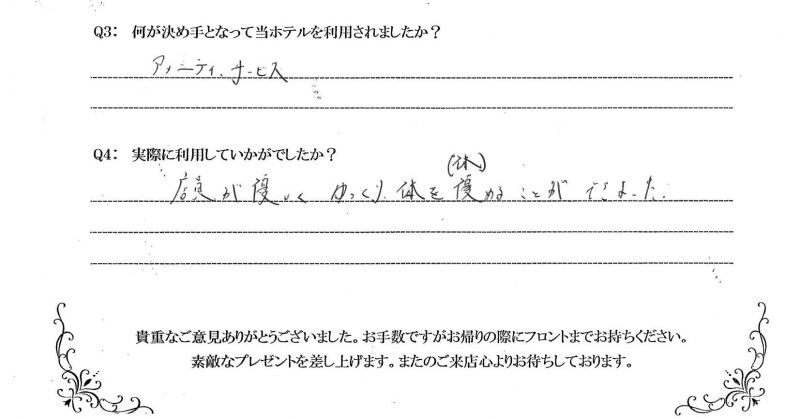 Q3： 何が決め手となって当ホテルを利用されましたか？
アメニティ、サービス
Q4： 実際に利用していかがでしたか？
(休)
店員が優しくゆっくり体を優めることができました。
貴重なご意見ありがとうございました。お手数ですがお帰りの際にフロントまでお持ちください。
素敵なプレゼントを差し上げます。またのご来店心よりお待ちしております。